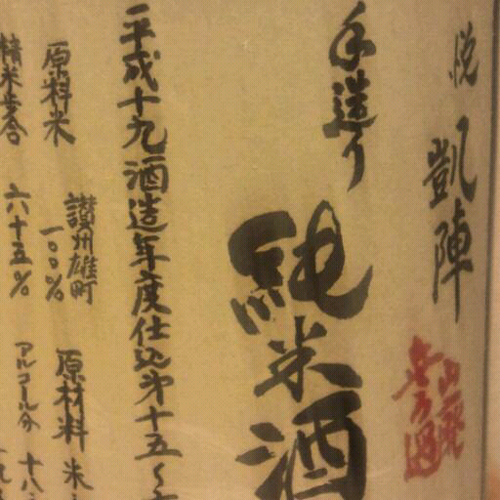 悦 凱陣
手造り
純米酒
平成十九酒造年度仕込第十五〜
原料米 讃州雄町 一〇〇% 原材料 米
精米歩合 六十五% アルコール分 十八